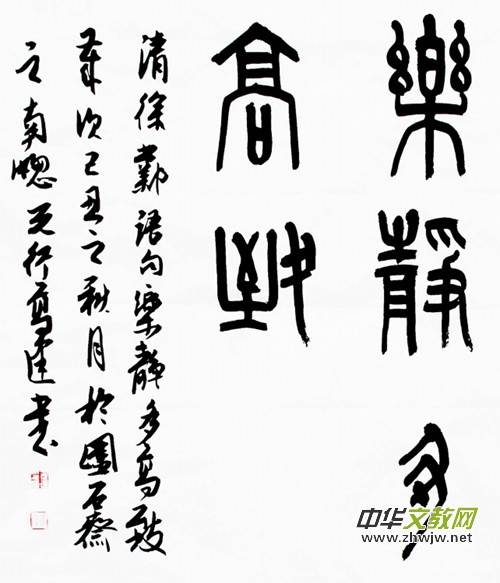 樂靜多
高致
清徐語句樂靜多高致
歲次己丑之秋月於石齋
之南窗書
中华文教网
www.zhwjw.net